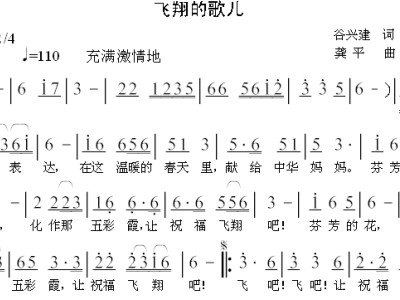 飞翔的歌儿
谷兴建 词
/4 ♩=110 充满激情地
龚平 曲
– | 6 i7 | 3 – | 22 1235 | 66 56i2 | 3 35 | 6 – ) |
36i | 5 – | i6 656 | 51 3 | 5·6 51 | 3 · | 6·
表 达，在这 温暖的 春天 里，献 给 中华 妈 妈。 芬 芳
– | 2 223 | 16 | 6·6 | 6·6 563 | 3 – | 3 i65 | 6 –
， 化 作那 五彩 霞，让 祝 福 飞翔 吧！ 芬 芳 的 花，
65 3·3 | 22 23i6 | 6 – ‖: 3·6 | 3·6 | 2·2
五彩 霞，让 祝福 飞 翔 吧！ 飞 吧！飞 吧！让 祝 福